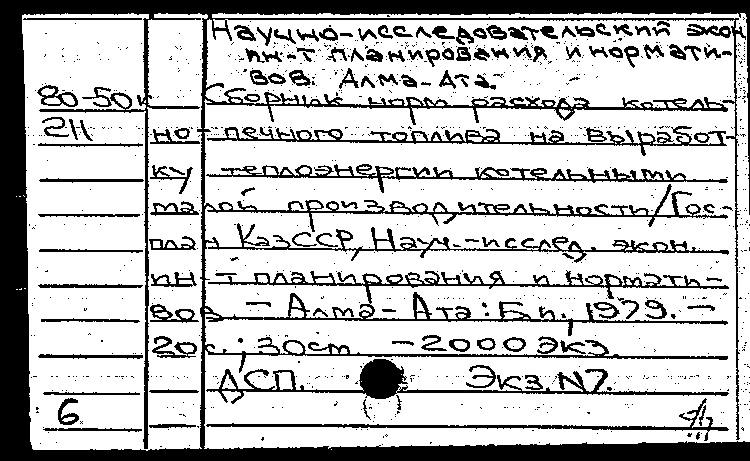 Научно-исследовательский экон.
ин-т планирования и нормати-
вов. Алма-Ата.
80-50к Сборник норм расхода котель-
211 но-печного топлива на выработ-
ку теплоэнергии котельными
малой производительности/Гос-
план КазССР, Науч.-исслед. экон.
ин-т планирования и нормати-
вов. - Алма-Ата: Б.и., 1979. -
20с.; 30см. - 2000 экз.
ДСП. Экз. N7.
6